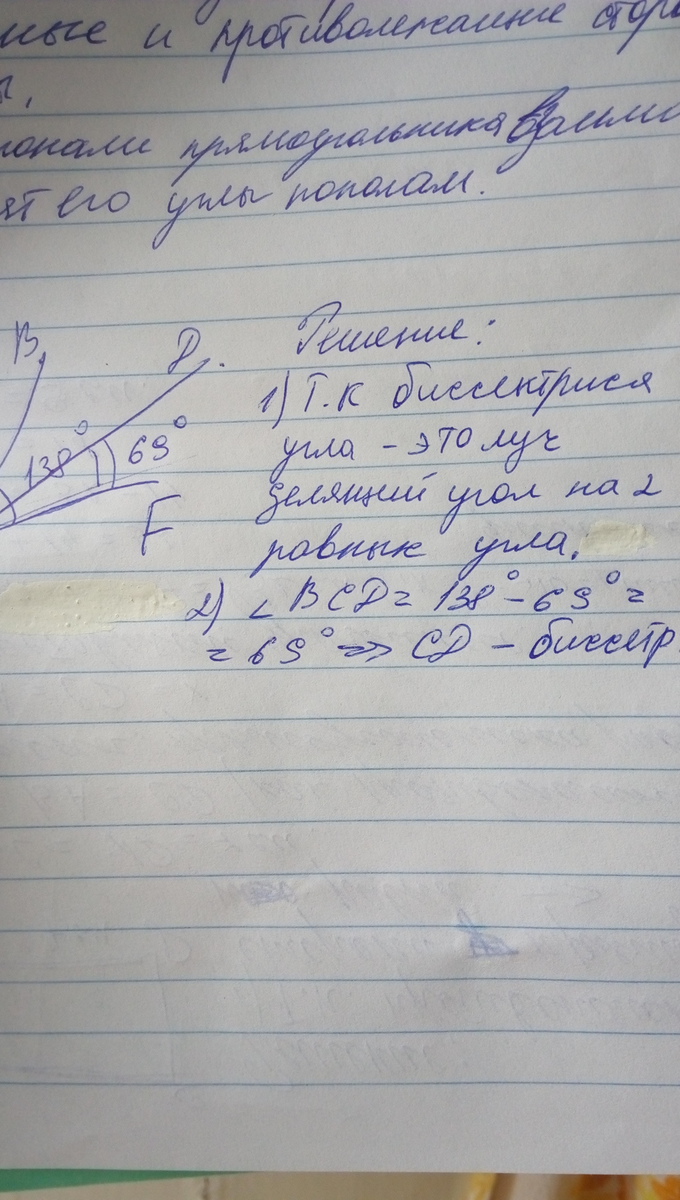 ные и противолежащие сторо
ы.
гонали прямоугольника взаимо
ят его углы пополам.
B
D
Решение:
138° 69°
F
1) Т.к биссектрися
угла - это луч
делящий угол на 2
равнык угла.
2) ∠ BCD = 138° - 69° =
= 69° => CD - биссетр.